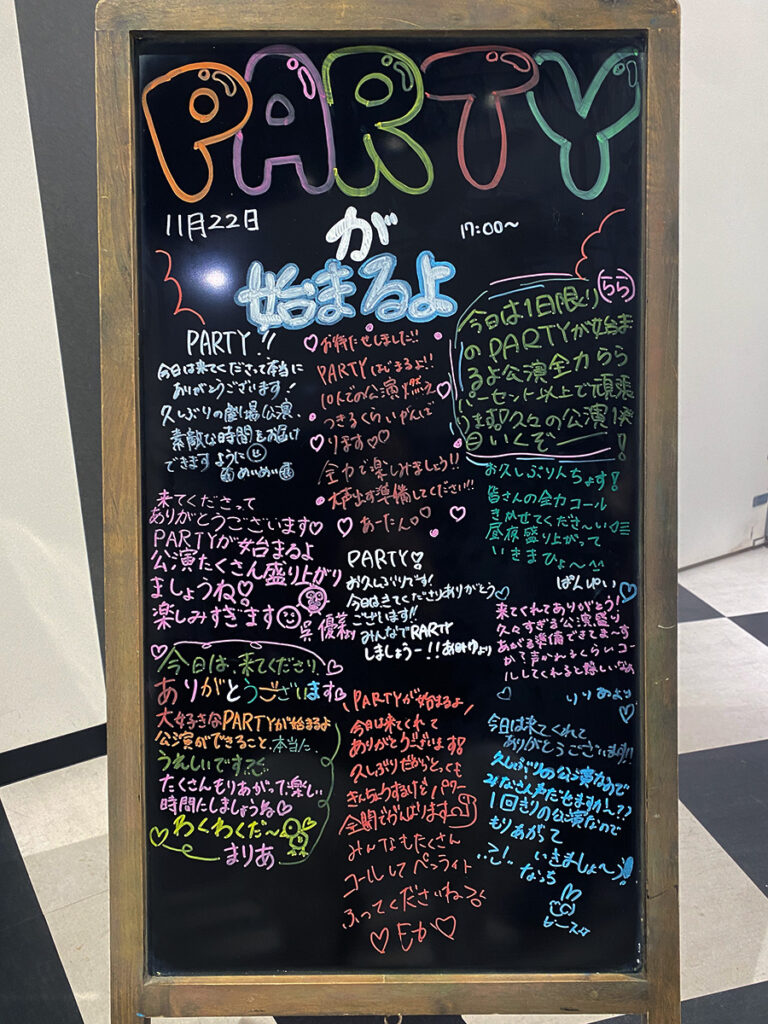 PARTY
11月22日
が
17:00~
始まるよ
PARTY!!
今日は来てくださって本当に
ありがとうございます!
久しぶりの劇場公演、
素敵な時間をお届け
できますように
めいめい
お待たせしました!!
PARTYはじまるよ!!
10人での公演燃え
つきるくらいがんば
ります♡♡
全力で楽しみましょう!!
大声出す準備してください!!
あーたん
らら
今日は1日限り
のPARTYが始ま
るよ公演全力らら
パーセント以上で頑張
ります!久々の公演1発
目いくぞー!
お久しぶりんちょす!
皆さんの全力コール
きかせてくださ〜い♡
昼夜盛り上がって
いきまひょ〜^^
ぱんぴい
来てくださって
ありがとうございます♡
PARTYが始まるよ
公演たくさん盛り上がり
ましょうね!
楽しみすぎます
PARTY♡
お久しぶりです!
今日はきてくださりありがとう
ございます!!
みんなでPARTY
しましょうー!!
より
来てくれてありがとう!
久々すぎる公演盛り
あがる準備できてまーす
か?声かれるくらいコー
ルしてくれると嬉しいなぁ
今日は、来てくださり
ありがとうございます♡
大好きなPARTYが始まるよ
公演ができること、本当に、
うれしいです
たくさんもりあがって、楽しい
時間にしましょうね♡
わくわくだ〜
まりあ
PARTYが始まるよ
今日は来てくれて
ありがとうございます!
久しぶりだからとっても
きんちょうするけどパワー
全開でがんばります
みんなもたくさん
コールしてペンライト
ふってくださいねっ
♡ Eか ♡
今日は来てくれて
ありがとうございます!!
久しぶりの公演なので
みなさん声だせますか〜??
1回きりの公演なので
もりあがって
いきましょ〜う!!
なっち
ピース☆